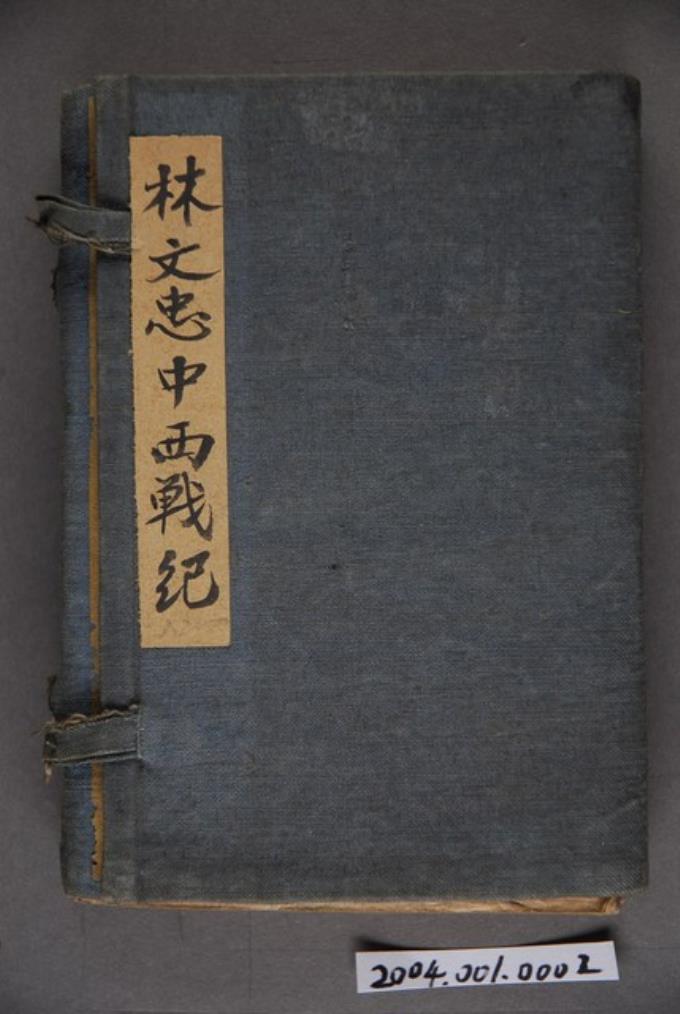 林文忠中西戰紀
2004.001.0002